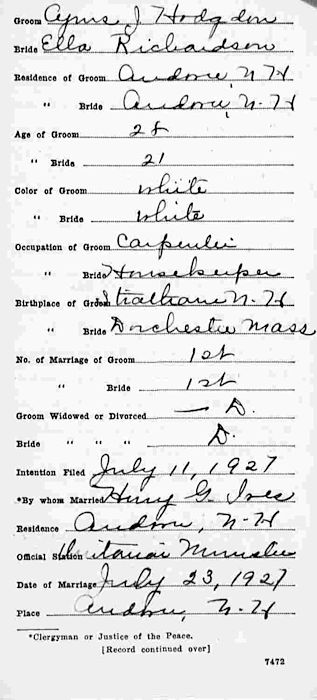 Groom Cyrus J. Hodgdon
Bride Ella Richardson
Residence of Groom Andover, N-H
" Bride Andover, N-H
Age of Groom 28
" Bride 21
Color of Groom white
" Bride white
Occupation of Groom Carpenter
" Bride Housekeeper
Birthplace of Groom Stratham N-H
" Bride Dorchester Mass
No. of Marriage of Groom 1st
" Bride 1st
Groom Widowed or Divorced — D.
Bride " " " D.
Intention Filed July 11, 1927
*By whom Married Henry G. Ives
Residence Andover, N-H
Official Station Unitarian Minister
Date of Marriage July 23, 1927
Place Andover, N-H
*Clergyman or Justice of the Peace.
[Record continued over]
7472